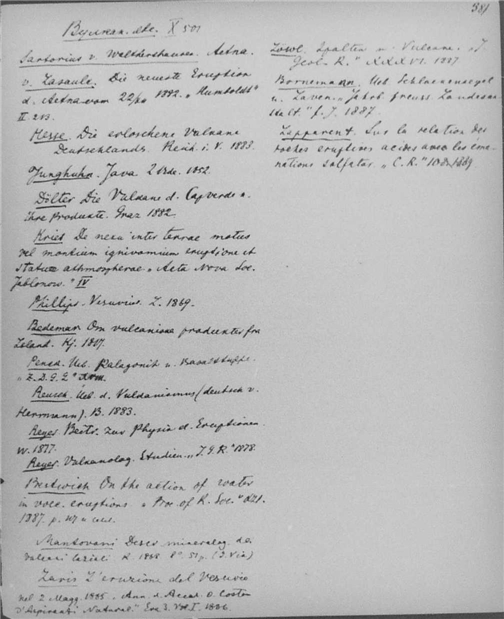 381
X 501
Sartorius v. Waltershausen. Aetna.
v. Lasaulx. Die neueste Eruption
d. Aetna vom 22/ 1892. „Humboldt"
II. 213.
Hesse. Die erloschene Vulcane
Deutschlands. 1883.
Junghuhn. Java. 2 Bde. 1852.
Dölter Die Vulcane d. Capverde u.
ihre Producte. Graz 1882.
Kries De nexu inter terrae motus
vel montium ignivomium eruptione et
statum athmospherae. „Acta Nova Soc.
Jablonow." IV
Phillips. Vesuvius. L. 1869.
Bedeman Om vulcaniske producter fra
Island. Kj. 1817.
Penck. Ueb. Palagonit u. Basalttuffe.
„Z. D. G. G."
Reusch. Ueb. d. Vulcanismus (deutsch v.
Herrmann). B. 1883.
Reyer Beitr. zur Physik d. Eruptionen
W. 1877.
Reyer. Vulcanolog. Studien. „J. G. R." 1878.
On the action of water
in volc. eruptions „Proc of R. Soc."
1887. p.
Mantovani Descr mineralog. dei
Vulcani Laziali R. 1868. 8° p.
L'eruzione del Vesuvio
nel 2 Magg. 1885. Ann. d. Accad. O. Costa
d'Aspiranti Natural." Era 3. Vol I. 1886.
Löwl. Spalten u. Vulcane. „J.
Geol. R." XXXVI. 1887
Bornemann. Ueb Schlackenkegel
u. Laven. „Jahrb. preuss. Landesan-
stalt." f. J. 1887.
Lapparent. Sur la relation des
roches eruptives acides avec les ema-
nations sulfates. „C. R." 1889